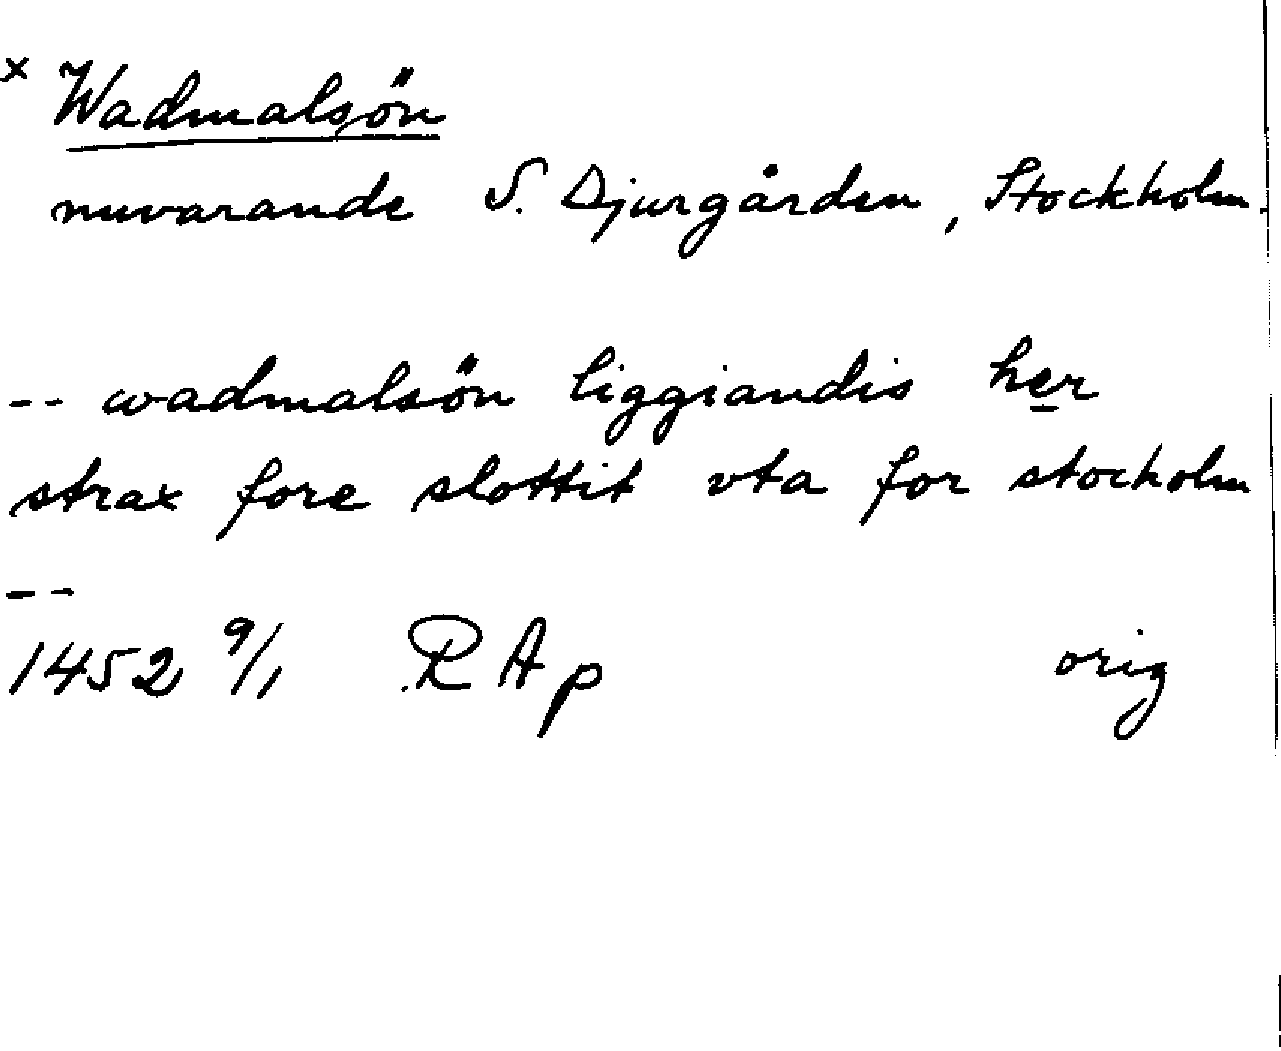 x Wadmalsön
nuvarande S. Djurgården, Stockholm.
-- wadmalsön liggiandis her
strax fore slottit vta for stockolm
--
1452 9/1 RAp orig